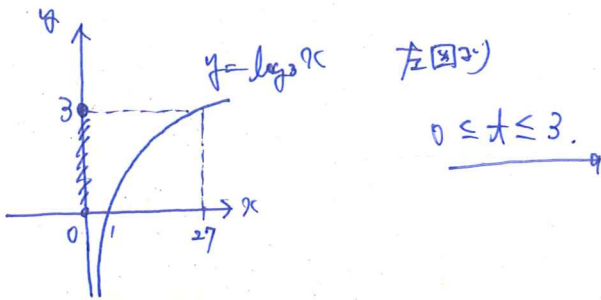 y
y=log₃x
左図より
3
0≤t≤3.
x
0
1
27